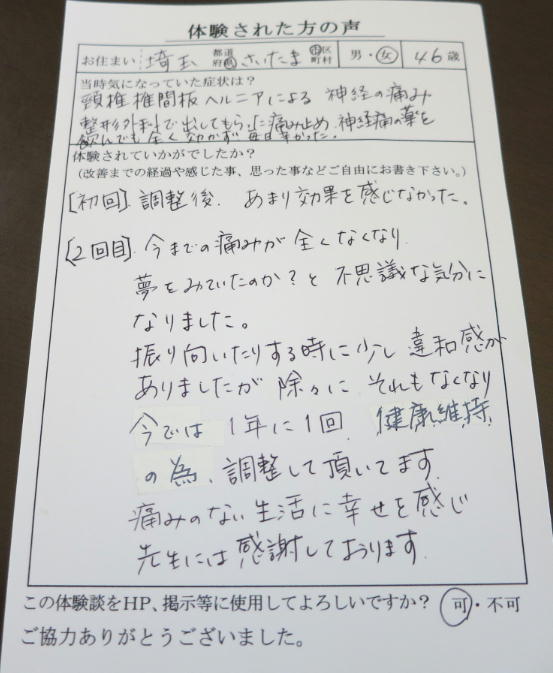 体験された方の声
お住まい 埼玉 都道府県 さいたま 市区町村 男・女 46歳
当時気になっていた症状は？
頸椎椎間板ヘルニアによる 神経の痛み
整形外科で出してもらった痛み止め、神経痛の薬を
飲んでも全く効かず 毎日辛かった。
体験されていかがでしたか？
（改善までの経過や感じた事、思った事などご自由にお書き下さい。）
[初回] 調整後、あまり効果を感じなかった。
[2回目] 今までの痛みが全くなくなり
夢をみていたのか？と不思議な気分に
なりました。
振り向いたりする時に少し違和感が
ありましたが 除々に それもなくなり
今では 1年に1回 健康維持
の為、調整して頂いてます
痛みのない生活に幸せを感じ
先生には感謝しております。
この体験談をHP、掲示等に使用してよろしいですか？ 可・不可
ご協力ありがとうございました。